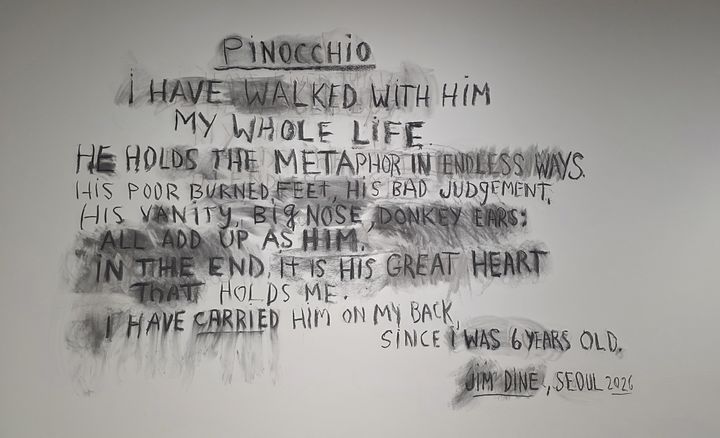 PINOCCHIO
i HAVE WALKED WITH HiM
MY WHOLE LiFE.
HE HOLDS THE METAPHOR IN ENDLESS WAYS.
HIS POOR BURNED FEET, HiS BAD JUDGEMENT,
HIS VANITY, BIG NOSE, DONKEY EARS:
ALL ADD UP AS HIM.
IN THE END, IT IS HIS GREAT HEART
THAT HOLDS ME.
I HAVE CARRIED HIM ON MY BACK,
SINCE I WAS 6 YEARS OLD.
JIM DINE, SEOUL 2026